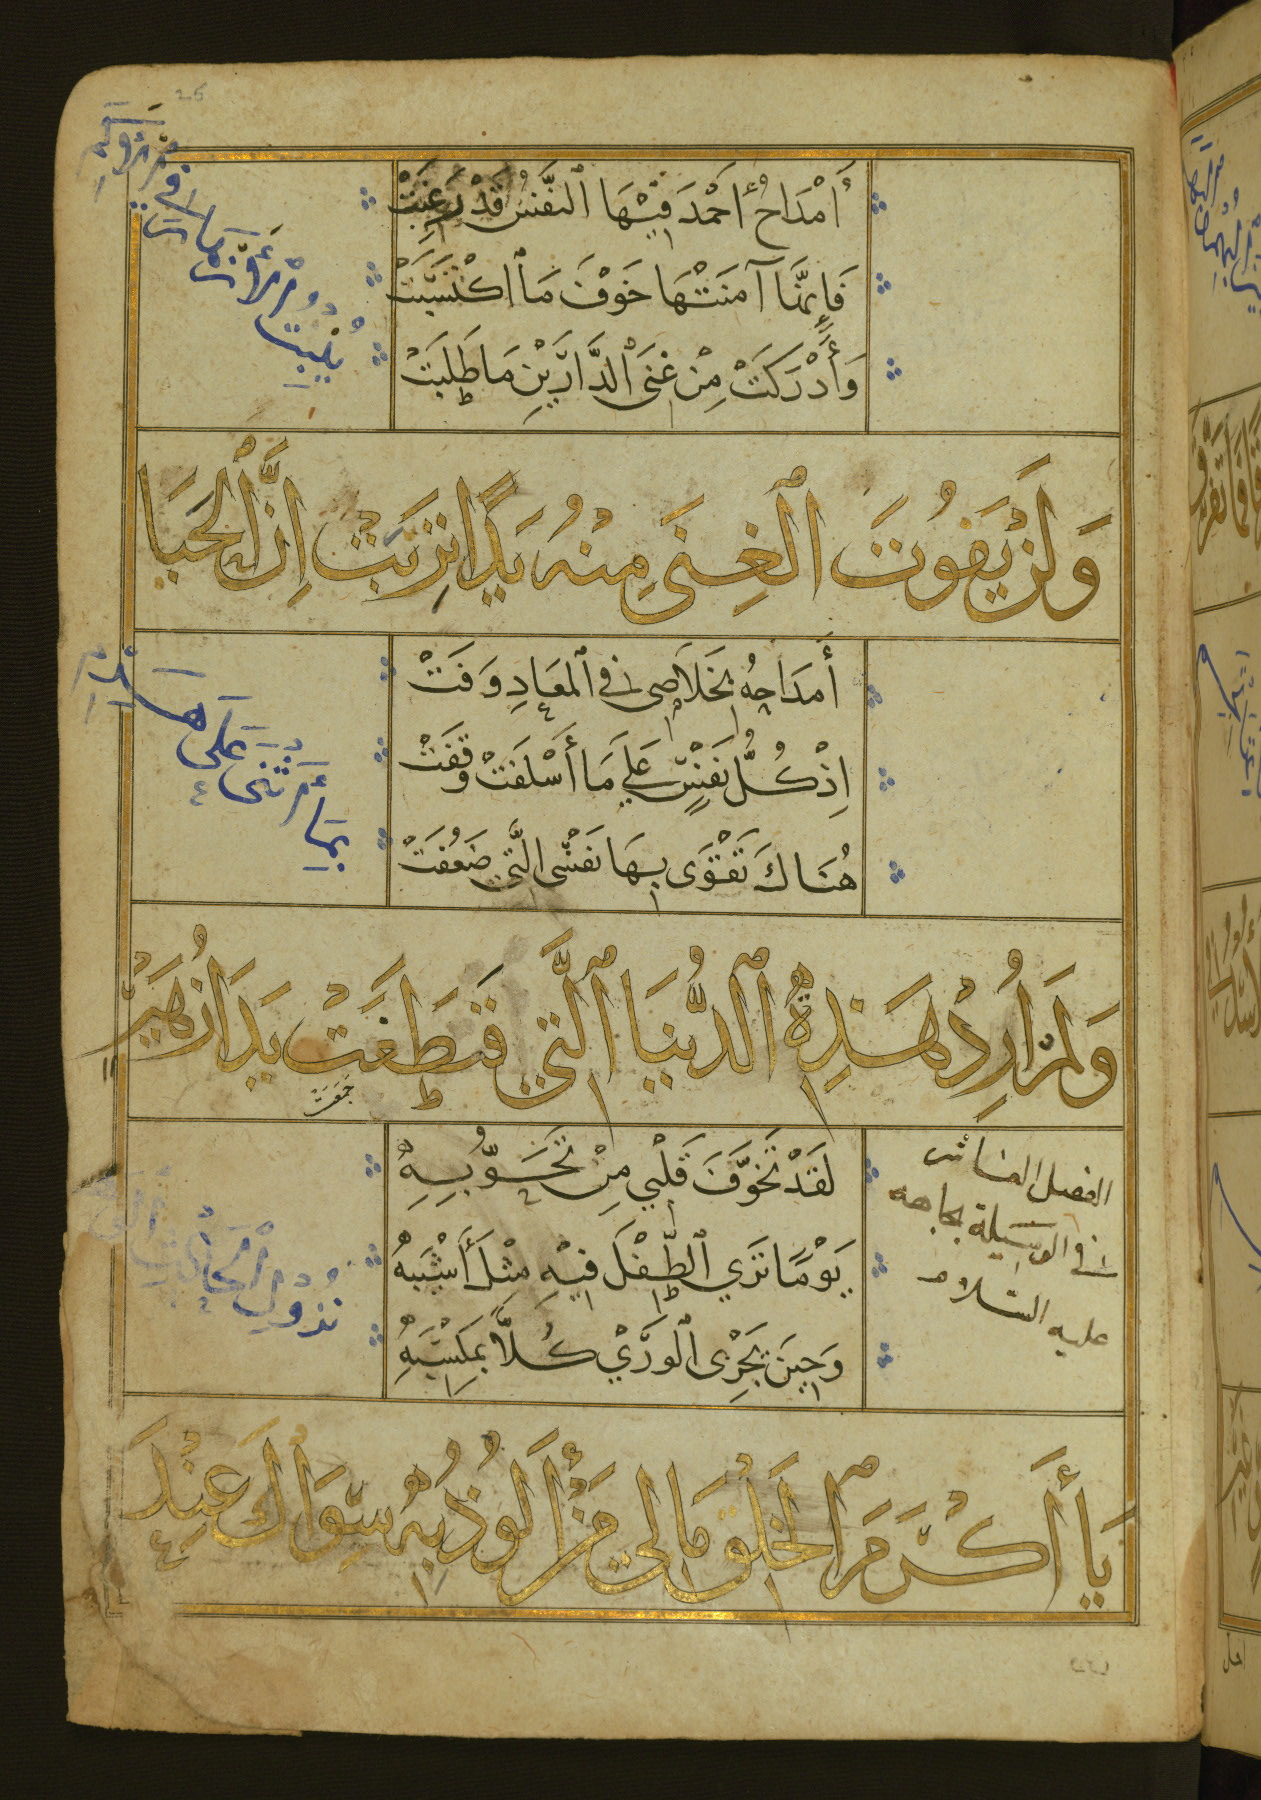 أَمْدَاحُ أَحْمَدَ فِيْهَا النَّفْسُ قَدْ رَغِبَتْ
فَإِنَّهَا آمَنَتْهَا خَوْفَ مَا اكْتَسَبَتْ
وَأَدْرَكَتْ مِنْ غِنَى الدَّارَيْنِ مَا طَلَبَتْ
يُنْبِتُ
وَلَنْ يَفُوتَ الْغِنَى مِنْهُ يَدًا تَرِبَتْ اِنَّ الْحَيَا
أَمْدَاحُهُ بِخَلَاصِى فِي الْمَعَادِ وَفَتْ
اِذْ كُلُّ نَفْسٍ عَلَى مَا أَسْلَفَتْ وَقَفَتْ
هُنَاكَ تَقْوَى بِهَا نَفْسِى الَّتِي ضَعُفَتْ
بِمَا أَثْنَى عَلَى هَرِمِ
وَلَمْ اُرِدْ هَذِهِ الدُّنْيَا الَّتِي قَطَفَتْ يَدَا زُهَيْرٍ
جَمَعَتْ
الفصل العاشر
في الوسيلة بجاهه
عليه السلام
لَقَدْ تَخَوَّفَ قَلْبِي مِنْ تَحَوُّبِهِ
يَوْمًا تَرَي الطِّفْلَ فِيْهِ مِثْلَ أَشْيَبِهِ
وَحِينَ يُجْزَى الْوَرَيْ كُلًّا بِمَكْسَبِهِ
يَا أَكْرَمَ الْخَلْقِ مَا لِي مَنْ أَلُوذُ بِهِ سِوَاكَ عِنْدَ